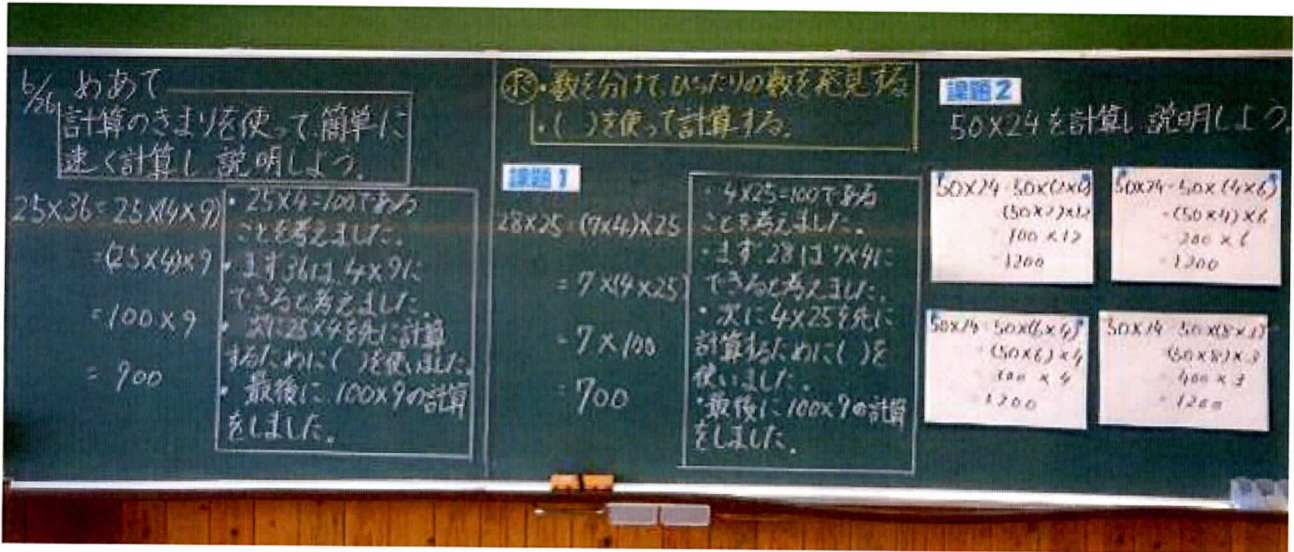 6/26
めあて
計算のきまりを使って簡単に
速く計算し 説明しよう。
25×36=25×(4×9)
=(25×4)×9
=100×9
=900
・25×4=100である
ことを考えました。
・まず36は4×9に
できると考えました。
・次に25×4を先に計算
するために( )を使いました。
・最後に100×9の計算
をしました。
・数を分けて、ぴったりの数を発見する。
・( )を使って計算する。
課題1
28×25=(7×4)×25
=7×(4×25)
=7×100
=700
・4×25=100である
ことを考えました。
・まず28は7×4に
できると考えました。
・次に4×25を先に
計算するために( )を
使いました。
・最後に100×7の計算
をしました。
課題2
50×24を計算し 説明しよう。
50×24=50×(2×12)
(50×2)×12
100×12
=1200
50×24=50×(4×6)
=(50×4)×6
=200×6
=1200
50×24=50×(6×4)
=(50×6)×4
=300×4
=1200
50×24=50×(8×3)
(50×8)×3
=400×3
=1200